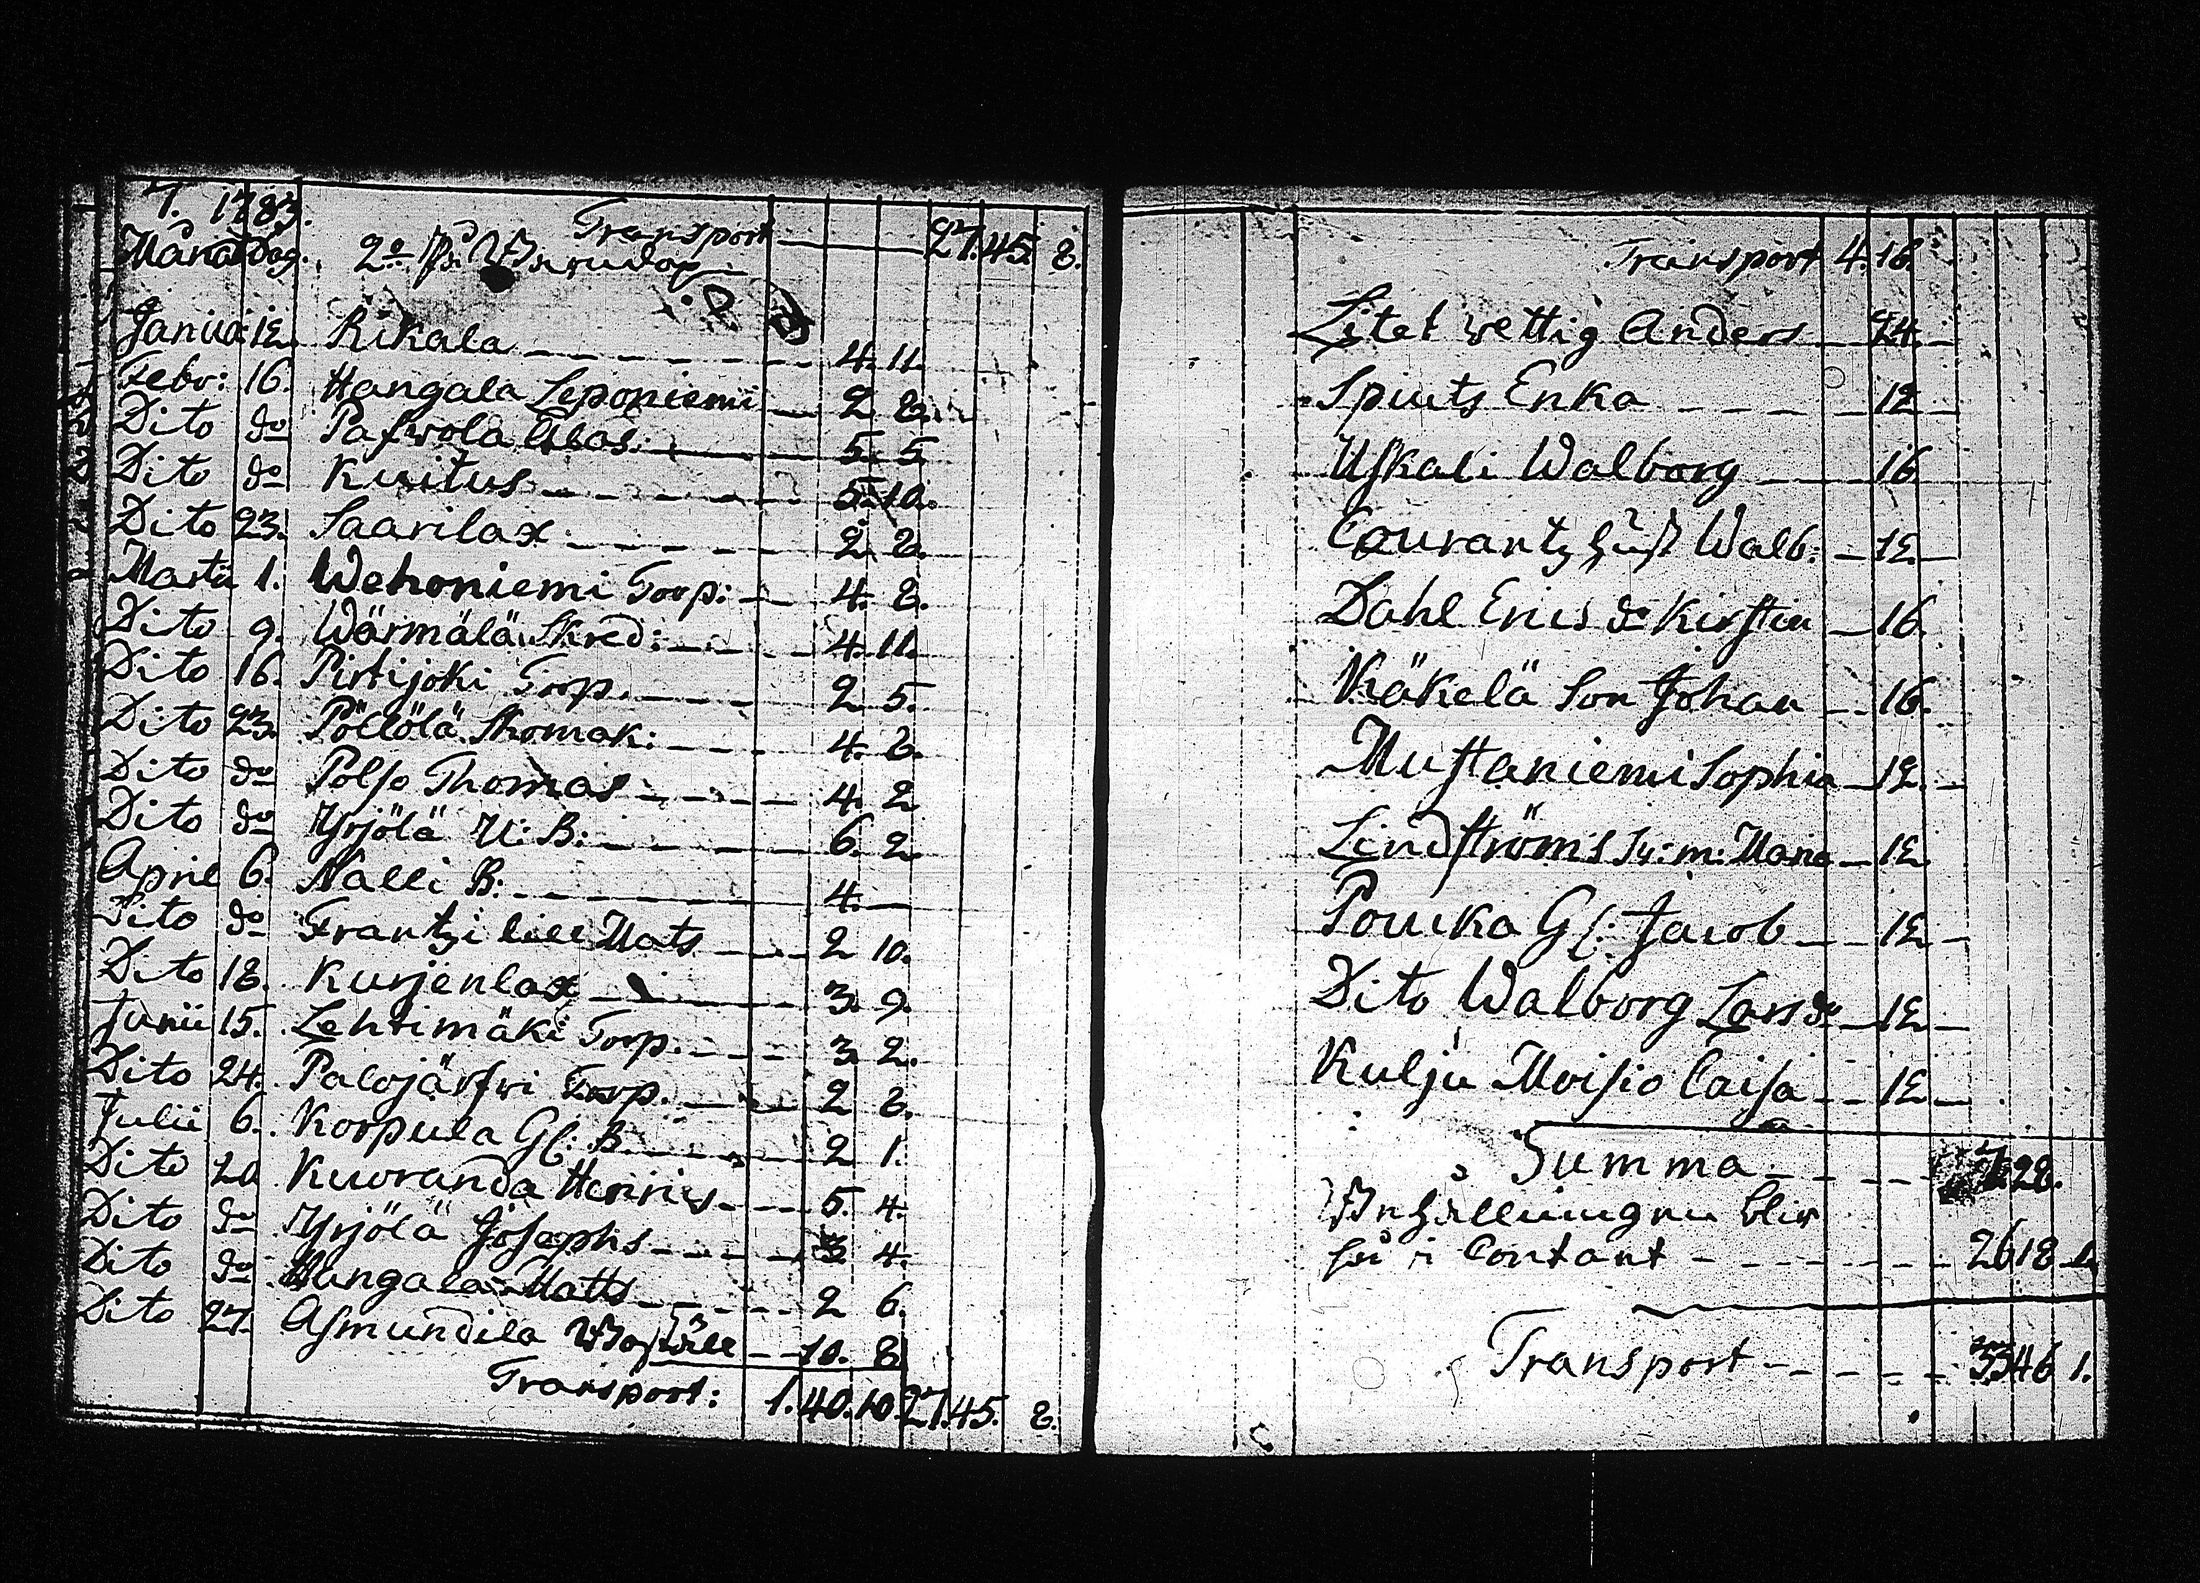 T. 1783.
Månad Dag. Transport 27. 45. 8.
2o
Janua: 12. Rikala 4. 11.
Febr: 16. Hangala Leponiemi 2 8.
Dito do Pafwola Glas: 5. 5.
Dito do Kuitus 5. 10.
Dito 23. Saarilax 2. 8.
Martii 1. Wehoniemi Torp: 4. 8.
Dito 9. Wärmälä Skred: 4. 11.
Dito 16. Pirtijoki Torp. 2 5.
Dito 23. Pöllölä Skomak: 4. 8.
Dito do Polso Thomas 4. 2
Dito do Yrjölä U: B: 6. 2
April 6. Nalli B: 4.
Dito do Frantzi lill Mats 2 10.
Dito 18. Kurjenlax 3. 9.
Junii 15. Lehtimäki Torp. 3 2.
Dito 24. Palojärfwi Torp. 2 8.
Julii 6. Korpula Gl: B. 2 1.
Dito 20 Kuoranda Henrics 5. 4.
Dito do Yrjölä Josephs 3 4.
Dito do Hangala Matts 2 6.
Dito 27. Asmundila 10. 8
Transport: 1. 40. 10. 27. 45. 8.
Transport 4. 16.
Litet wettig Anders 24.
Enka 12
Uskali Walborg 16
Courantz Hust Walb: 12
Dahl Erics dr Kirstin 16.
Käkelä Son Johan 16.
Mustaniemi Sophia 12.
Lindströms Sv: m: Maria 12
Poucka Gl: Jacob 12
Dito Walborg Lars dr 12
Kulju Moisio Caisa 12
Summa 7 28.
Behållningen blir
så i Contant 26 18
Transport 33 46 1.